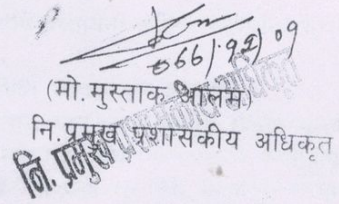 ०६६/१२/०९
(मो. मुस्ताक आलम)
नि. प्रमुख प्रशासकीय अधिकृत
नि. प्रमुख प्रशासकीय अधिकृत